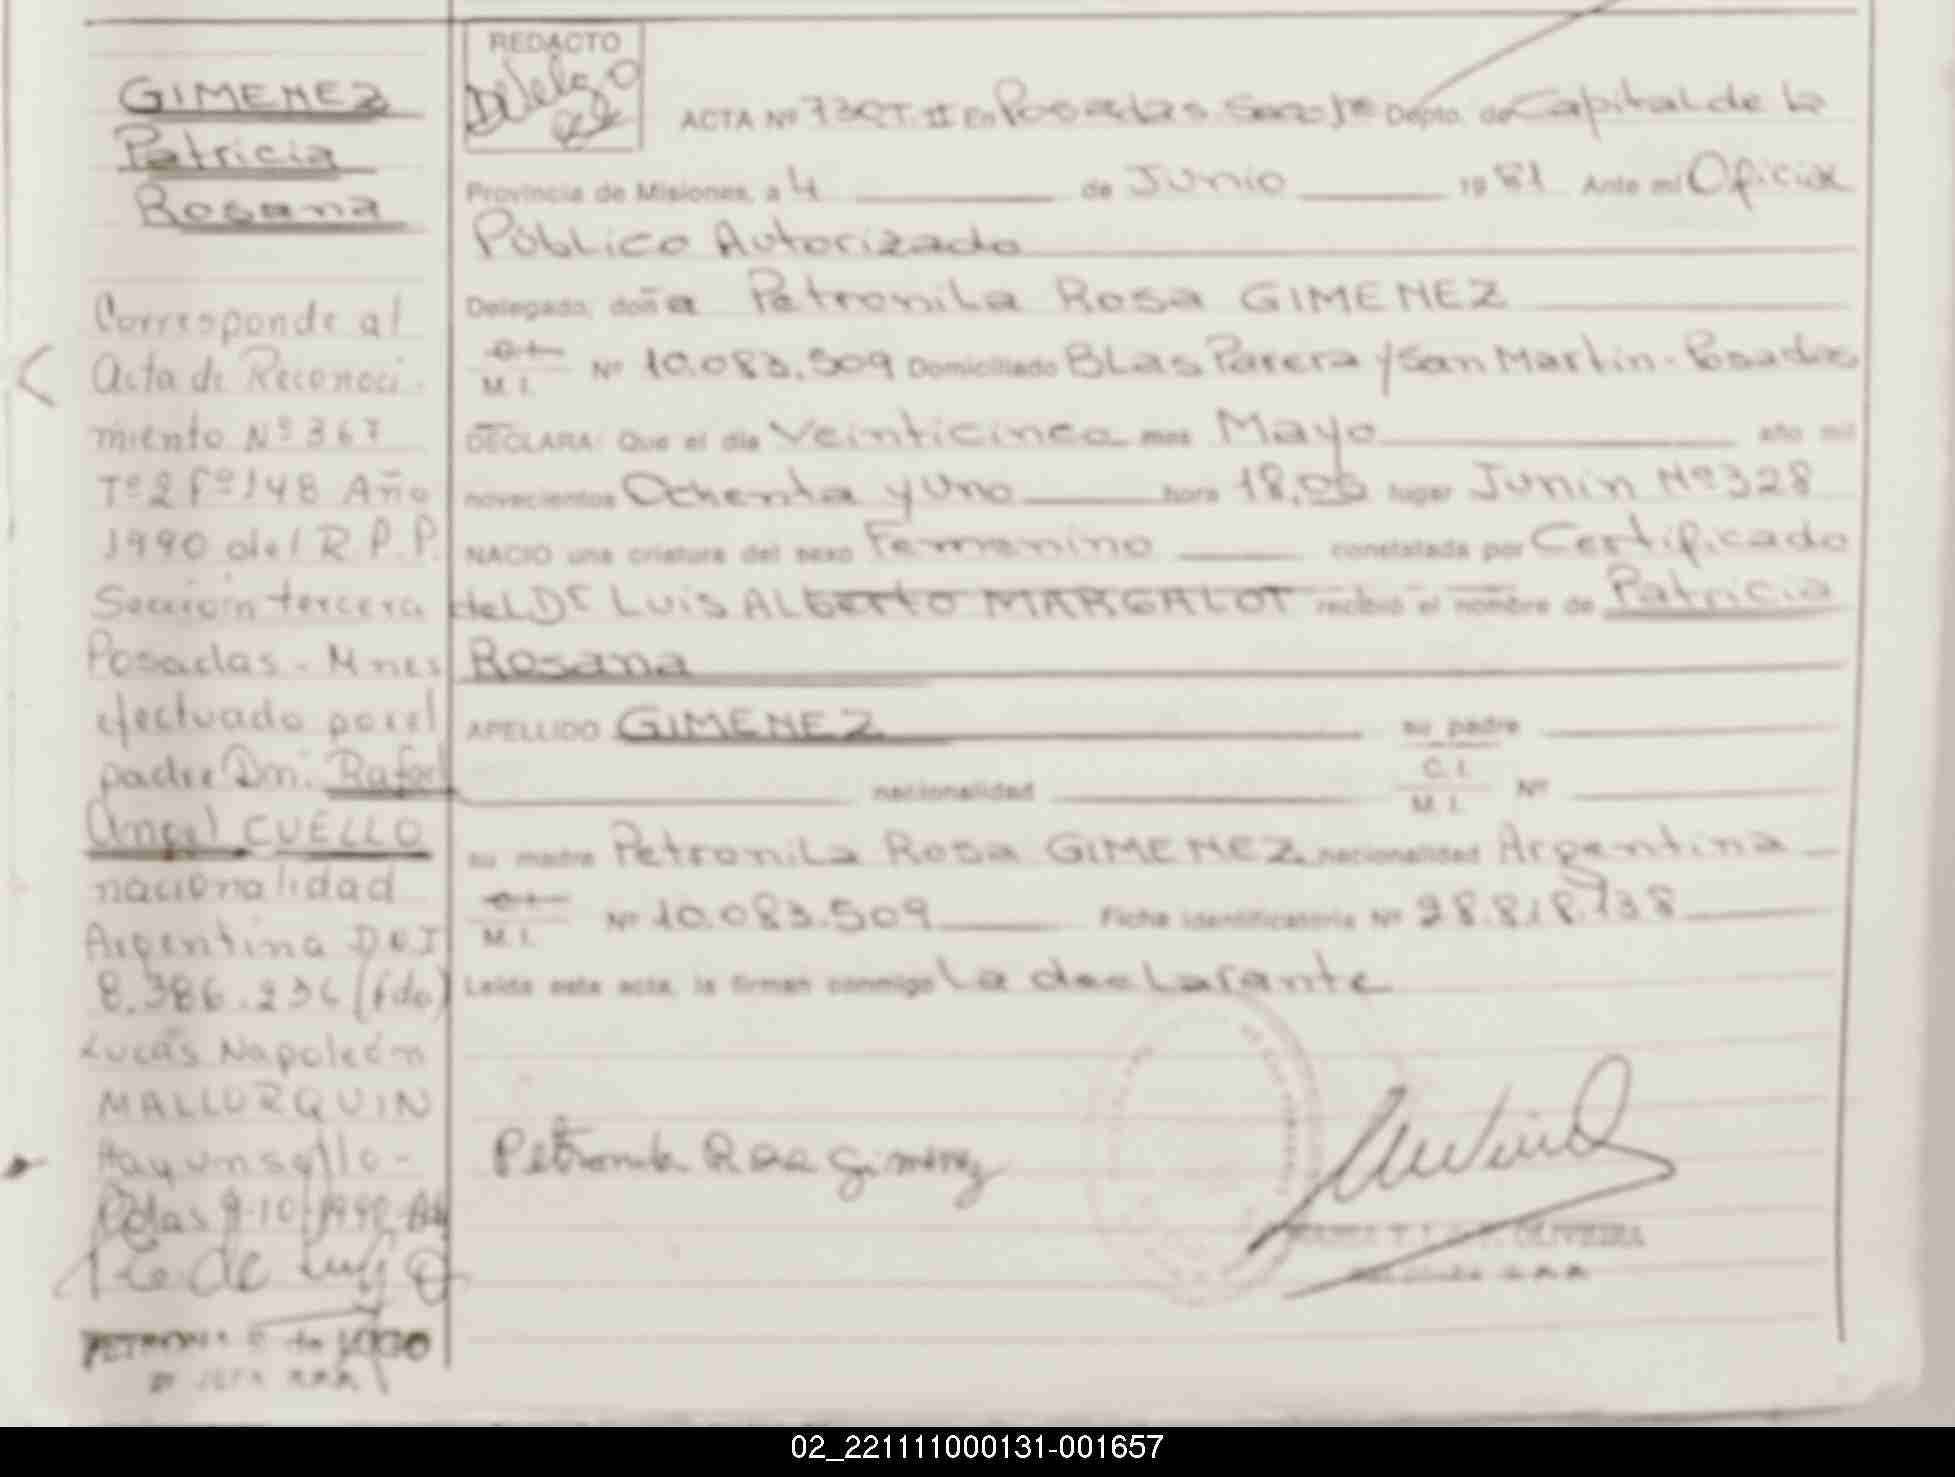 GIMENEZ
Patricia
Rosana
Corresponde al
Acta de Reconoci-
miento Nº 367
Tº 2 Fº 148 Año
1990 del R.P.P.
Sección tercera
Posadas - Mnes
efectuado por el
padre Dn. Rafael
Angel CUELLO
nacionalidad
Argentina D.N.I
8.386.236 (fdo)
Lucas Napoleón
MALLORQUIN
Hay un sello -
Pdas 9-10-1990
REDACTO
ACTA Nº 730 T. II En Posadas Depto. de Capital de la
Provincia de Misiones, a 4 de Junio 1981 Ante mi Oficial
Público Autorizado
Delegado, doña Petronila Rosa GIMENEZ
M. I. Nº 10.083.509 Domiciliado Blas Parera y San Martin - Posadas
DECLARA: Que el día Veinticinco mes Mayo año mil
novecientos Ochenta y Uno hora 18,05 lugar Junin Nº 328
NACIO una criatura del sexo Femenino constatada por Certificado
del Dr Luis Alberto MARGALOT recibió el nombre de Patricia
Rosana
APELLIDO GIMENEZ su padre
nacionalidad C. I. M. I. Nº
su madre Petronila Rosa GIMENEZ nacionalidad Argentina
M. I. Nº 10.083.509 Ficha identificatoria Nº 28.818.738
Leída esta acta, la firman conmigo la declarante
Petronila Rosa Gimenez
OLIVEIRA
02_221111000131-001657